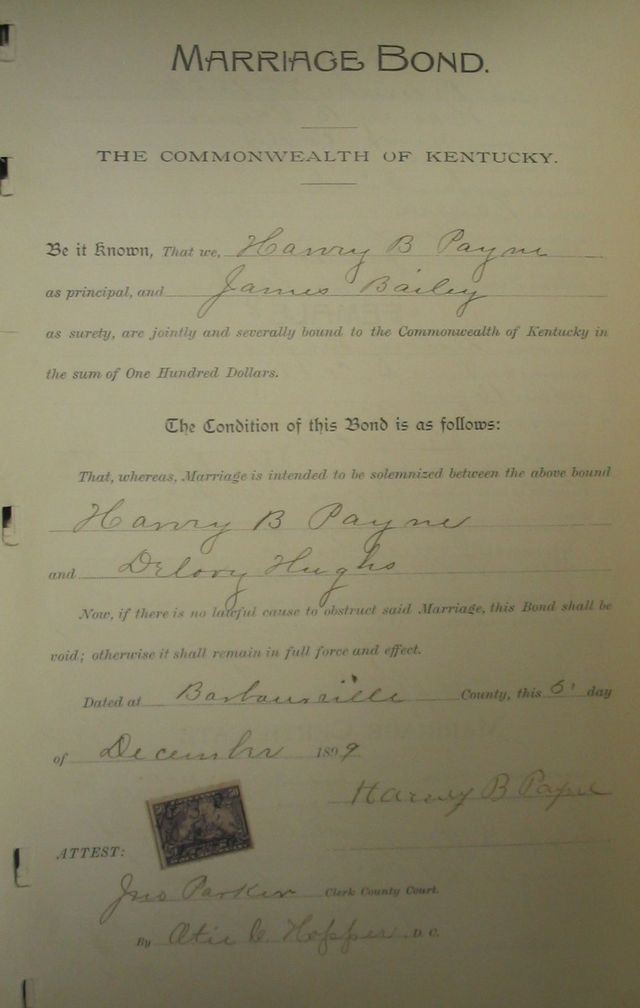 MARRIAGE BOND.
THE COMMONWEALTH OF KENTUCKY.
Be it Known, That we, Harvey B Payne
as principal, and James Bailey
as surety, are jointly and severally bound to the Commonwealth of Kentucky in
the sum of One Hundred Dollars.
The Condition of this Bond is as follows:
That, whereas, Marriage is intended to be solemnized between the above bound
Harvey B Payne
and Delory Hughs
Now, if there is no lawful cause to obstruct said Marriage, this Bond shall be
void; otherwise it shall remain in full force and effect.
Dated at Barbourville County, this 5 day
of December 1899
Harvey B Payne
ATTEST:
Jno Parker Clerk County Court.
By Hopper D. C.